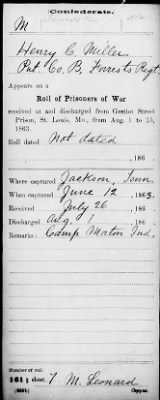 Confederate.
M
Henry C. Miller
Pvt. Co. B, Forrests Regt
Appears on a
Roll of Prisoners of War
received at and discharged from Gratiot Street
Prison, St. Louis, Mo., from Aug. 1 to 15,
1863.
Roll dated Not dated
, 186
Where captured Jackson, Tenn
When captured June 12, 1863.
Received July 26, 186
Discharged Aug. 1, 186
Remarks: Camp Morton Ind.
Number of roll:
sheet
T. M. Leonard
Copyist.